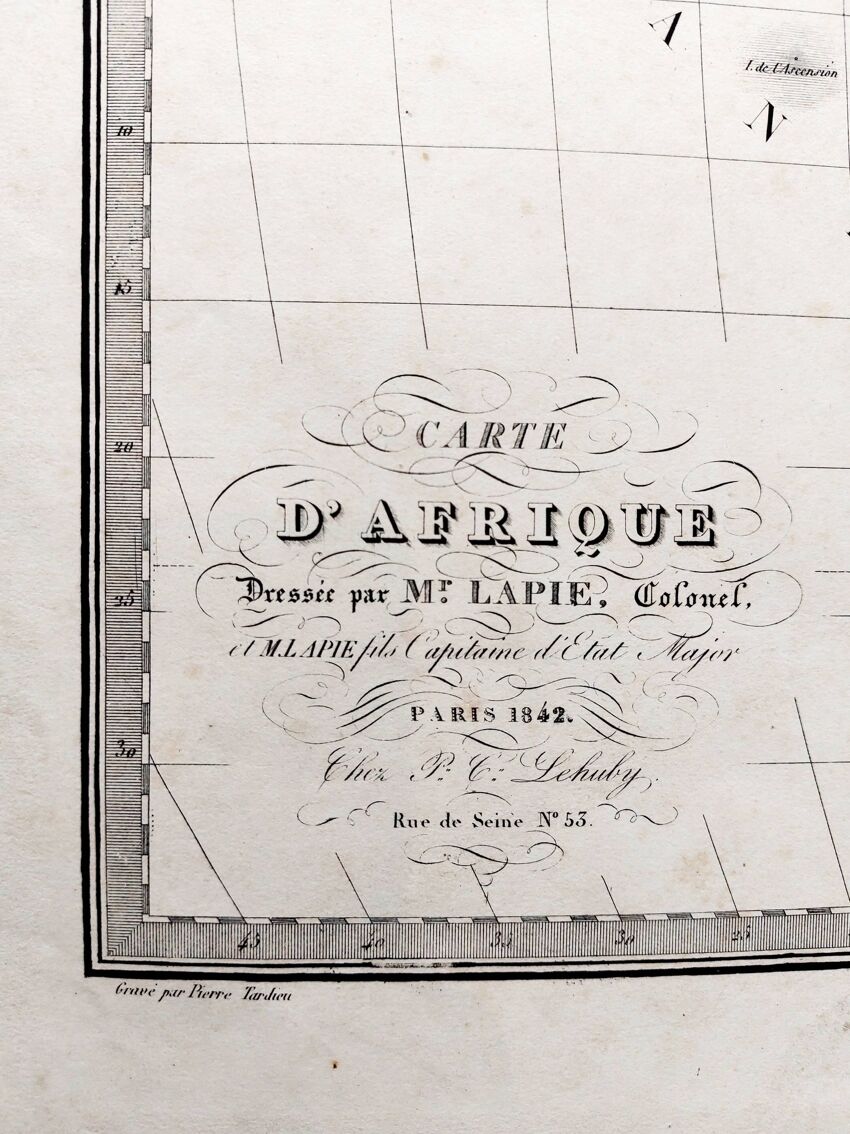 A
I. de l'Ascension
N
10
15
20
25
30
CARTE
D'AFRIQUE
Dressée par Mr. LAPIE, Colonel,
et M. LAPIE fils Capitaine d'Etat Major
PARIS 1842.
Chez P. C. Lehuby.
Rue de Seine No 53.
45 40 35 30 25
Gravé par Pierre Tardieu